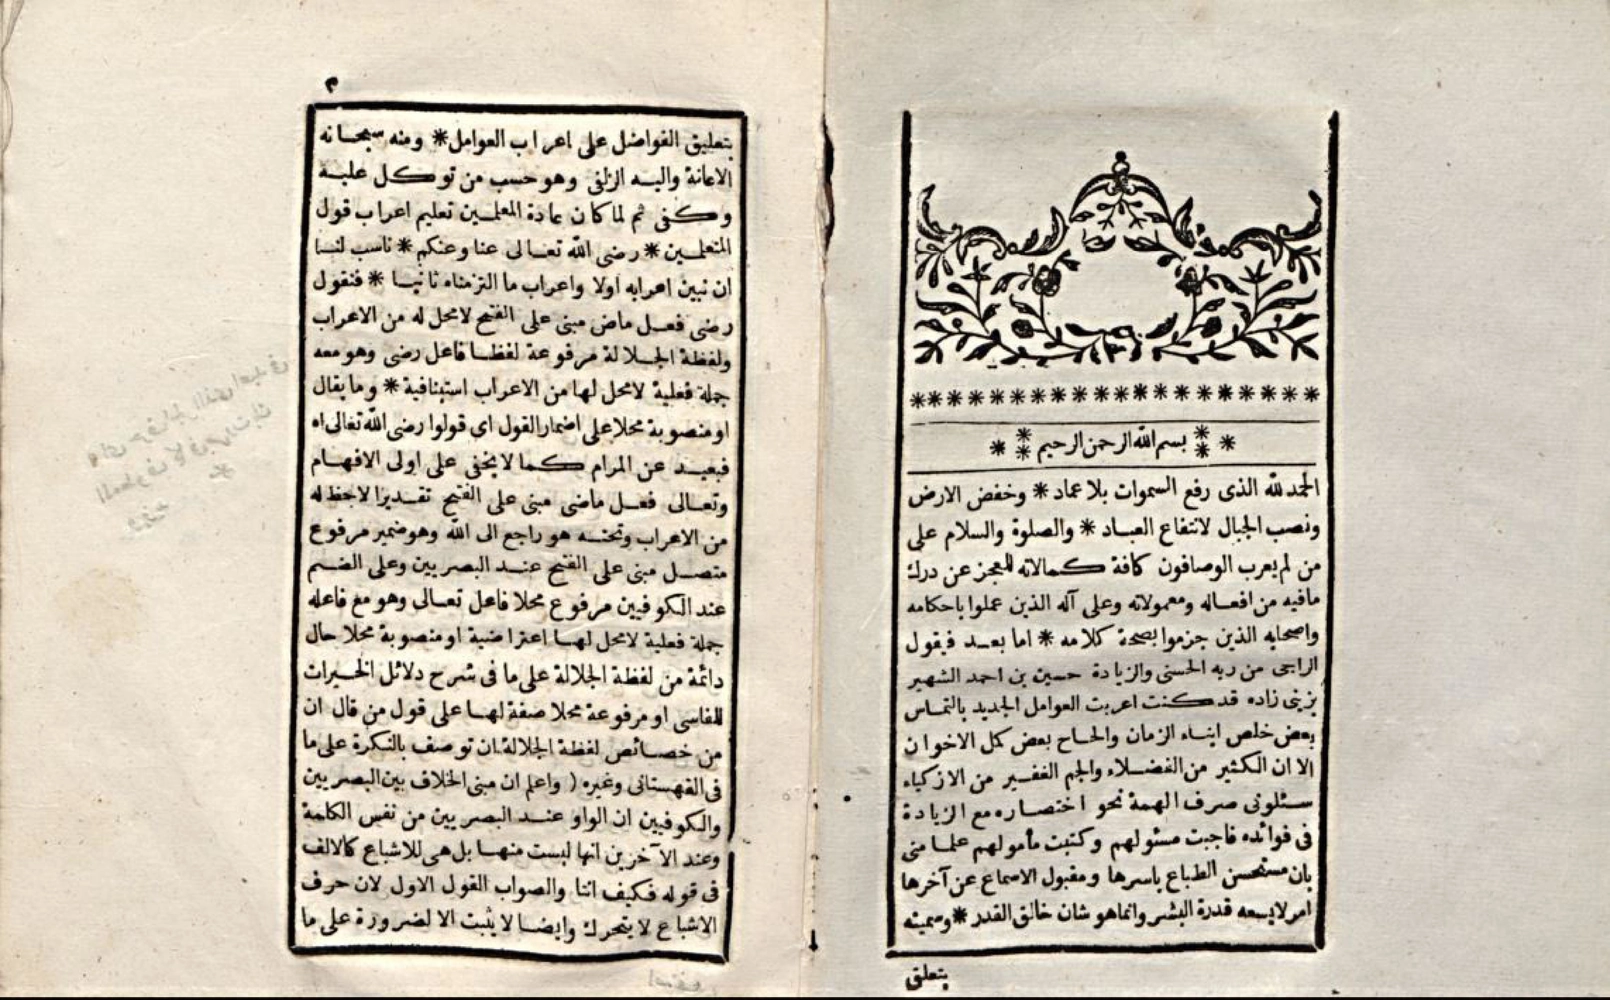 بسم الله الرحمن الرحيم
الحمد لله الذى رفع السموات بلا عماد * وخفض الارض
ونصب الجبال لانتفاع العباد * والصلوة والسلام على
من لم يعرب الوصافون كافة كمالاته للعجز عن درك
مافيه من افعاله ومعمولاته وعلى آله الذين عملوا باحكامه
واصحابه الذين جزموا بصحة كلامه * اما بعد فيقول
الراجى من ربه الحسنى والزيادة حسين بن احمد الشهير
بزينى زاده قد كنت اعربت العوامل الجديد بالتماس
بعض خلص ابناء الزمان والحاح بعض كمل الاخوان
الا ان الكثير من الفضلاء والجم الغفير من الازكياء
سئلونى صرف الهمة نحو اختصاره مع الزيادة
فى فوائده فاجبت مسئولهم وكتبت مأمولهم علما منى
بان مستحسن الطباع باسرها ومقبول الاسماع عن آخرها
امر لايسعه قدرة البشر وانماهو شان خالق القدر * وسميته
بتعلق
٣
بتعليق الفواضل على اعراب العوامل * ومنه سبحانه
الاعانة واليه الزلفى وهو حسب من توكل عليه
وكفى ثم لما كان عادة المعلمين تعليم اعراب قول
المتعلمين * رضى الله تعالى عنا وعنكم * ناسب لنا
ان نبين اعرابه اولا واعراب ما التزمناه ثانيا * فنقول
رضى فعل ماض مبنى على الفتح لامحل له من الاعراب
ولفظة الجلالة مرفوعة لفظا فاعل رضى وهو معه
جملة فعلية لامحل لها من الاعراب استينافية * وما يقال
او منصوبة محلا على اضمار القول اى قولوا رضى الله تعالى اه
فبعيد عن المرام كما لا يخفى على اولى الافهام
وتعالى فعل ماضى مبنى على الفتح تقديرا لامحل له
من الاعراب وتحته هو راجع الى الله وهو ضمير مرفوع
متصل مبنى على الفتح عند البصريين وعلى الضم
عند الكوفيين مرفوع محلا فاعل تعالى وهو مع فاعله
جملة فعلية لامحل لها اعتراضية او منصوبة محلا حال
دائمة من لفظة الجلالة على ما فى شرح دلائل الخيرات
للفاسى او مرفوعة محلا صفة لها على قول من قال ان
من خصائص لفظة الجلالة ان توصف بالنكرة على ما
فى القهستانى وغيره ( واعلم ان مبنى الخلاف بين البصريين
والكوفيين ان الواو عند البصريين من نفس الكلمة
وعند الآخرين انها ليست منها بل هى للاشباع كالالف
فى قوله فكيف انتا والصواب القول الاول لان حرف
الاشباع لا يتحرك وايضا لا يثبت الا لضرورة على ما